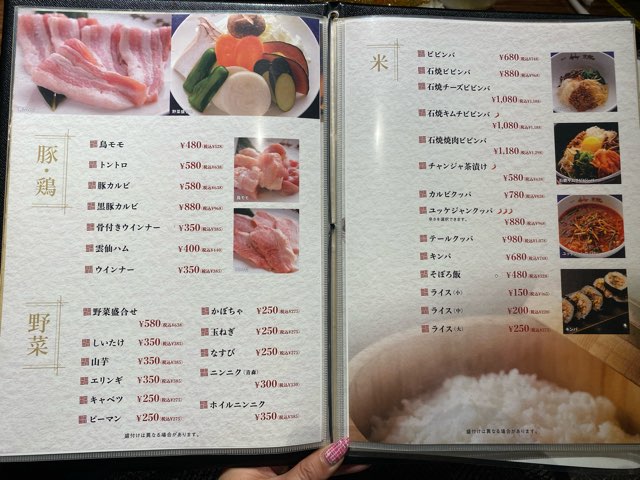 豚・鶏
鳥モモ ¥480(税込¥528)
トントロ ¥580(税込¥638)
豚カルビ ¥580(税込¥638)
黒豚カルビ ¥880(税込¥968)
骨付きウインナー ¥350(税込¥385)
雲仙ハム ¥400(税込¥440)
ウインナー ¥350(税込¥385)
野菜
野菜盛合せ
¥580(税込¥638)
しいたけ ¥350(税込¥385)
山芋 ¥350(税込¥385)
エリンギ ¥350(税込¥385)
キャベツ ¥250(税込¥275)
ピーマン ¥250(税込¥275)
かぼちゃ ¥250(税込¥275)
玉ねぎ ¥250(税込¥275)
なすび ¥250(税込¥275)
ニンニク(青森)
¥300(税込¥330)
ホイルニンニク
¥350(税込¥385)
盛付けは異なる場合があります。
米
ビビンバ ¥680(税込¥748)
石焼ビビンバ ¥880(税込¥968)
石焼チーズビビンバ
¥1,080(税込¥1,188)
石焼キムチビビンバ
¥1,080(税込¥1,188)
石焼焼肉ビビンバ
¥1,180(税込¥1,298)
チャンジャ茶漬け
¥580(税込¥638)
カルビクッパ ¥780(税込¥858)
ユッケジャンクッパ
辛さを選択できます。
¥880(税込¥968)
テールクッパ ¥980(税込¥1,078)
キンパ ¥680(税込¥748)
そぼろ飯 ¥480(税込¥528)
ライス(小) ¥150(税込¥165)
ライス(中) ¥200(税込¥220)
ライス(大) ¥250(税込¥275)
キンパ
盛付けは異なる場合があります。